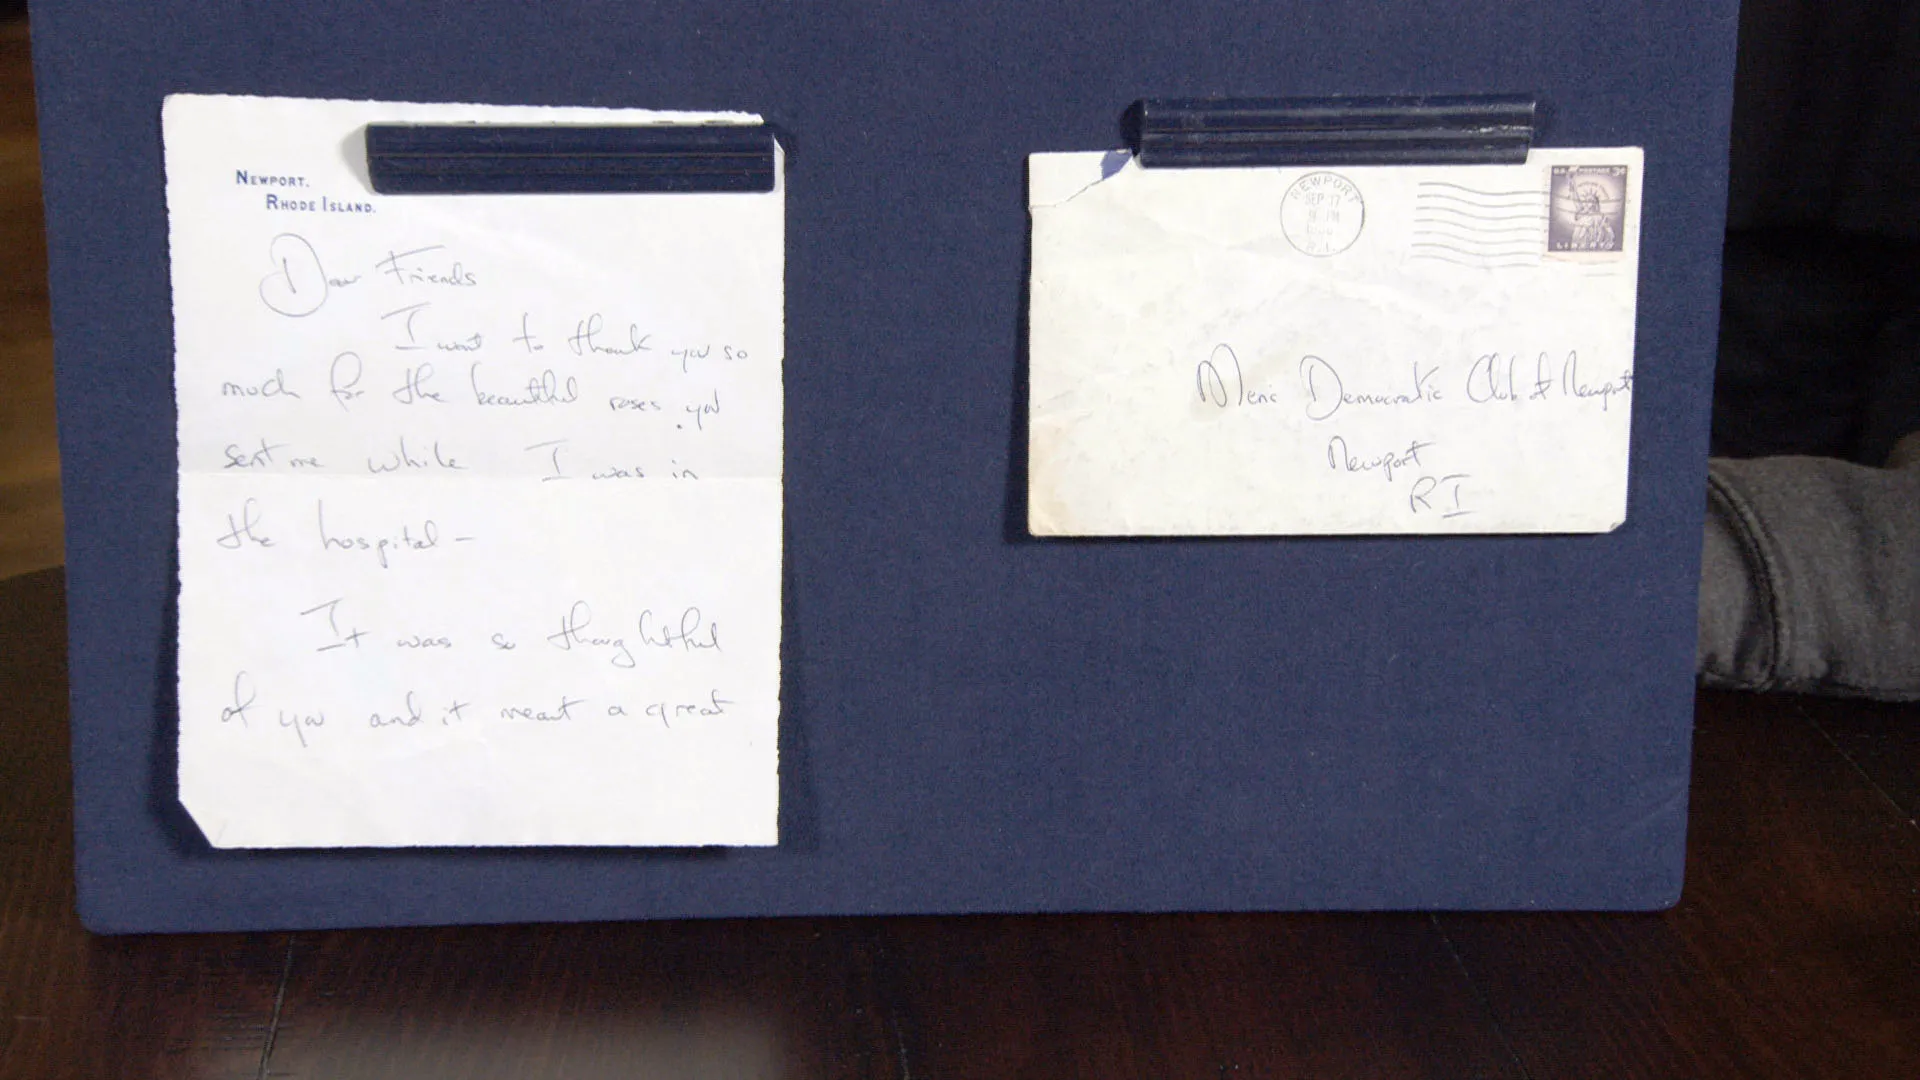 NEWPORT.
RHODE ISLAND.
Dear Friends
I want to thank you so
much for the beautiful roses you
sent me while I was in
the hospital –
It was so thoughtful
of you and it meant a great
NEWPORT
SEP 17
PM
R.I.
U.S. POSTAGE 3¢
LIBERTY
Mens Democratic Club of Newport
Newport
RI